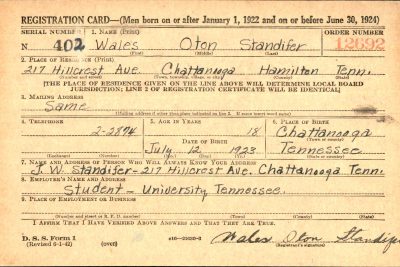 REGISTRATION CARD—(Men born on or after January 1, 1922 and on or before June 30, 1924)
SERIAL NUMBER 1. NAME (Print) ORDER NUMBER
N 402 Wales Oton Standifer 12692
(First) (Middle) (Last)
2. PLACE OF RESIDENCE (Print)
217 Hillcrest Ave. Chattanooga Hamilton Tenn.
(Number and street) (Town, township, village, or city) (County) (State)
[THE PLACE OF RESIDENCE GIVEN ON THE LINE ABOVE WILL DETERMINE LOCAL BOARD
JURISDICTION; LINE 2 OF REGISTRATION CERTIFICATE WILL BE IDENTICAL]
3. MAILING ADDRESS
Same
(Mailing address if other than place indicated on line 2. If same insert word same)
4. TELEPHONE 5. AGE IN YEARS 6. PLACE OF BIRTH
2-2894 18 Chattanooga
DATE OF BIRTH (Town or county)
July 12 1923 Tennessee
(Exchange) (Number) (Mo.) (Day) (Yr.) (State or country)
7. NAME AND ADDRESS OF PERSON WHO WILL ALWAYS KNOW YOUR ADDRESS
J. W. Standifer-217 Hillcrest Ave. Chattanooga Tenn.
8. EMPLOYER'S NAME AND ADDRESS
Student - University Tennessee.
9. PLACE OF EMPLOYMENT OR BUSINESS
(Number and street or R. F. D. number) (Town) (County) (State)
I AFFIRM THAT I HAVE VERIFIED ABOVE ANSWERS AND THAT THEY ARE TRUE.
D. S. S. Form 1
(Revised 6-1-42) (over) Wales Oton Standifer
(Registrant's signature)